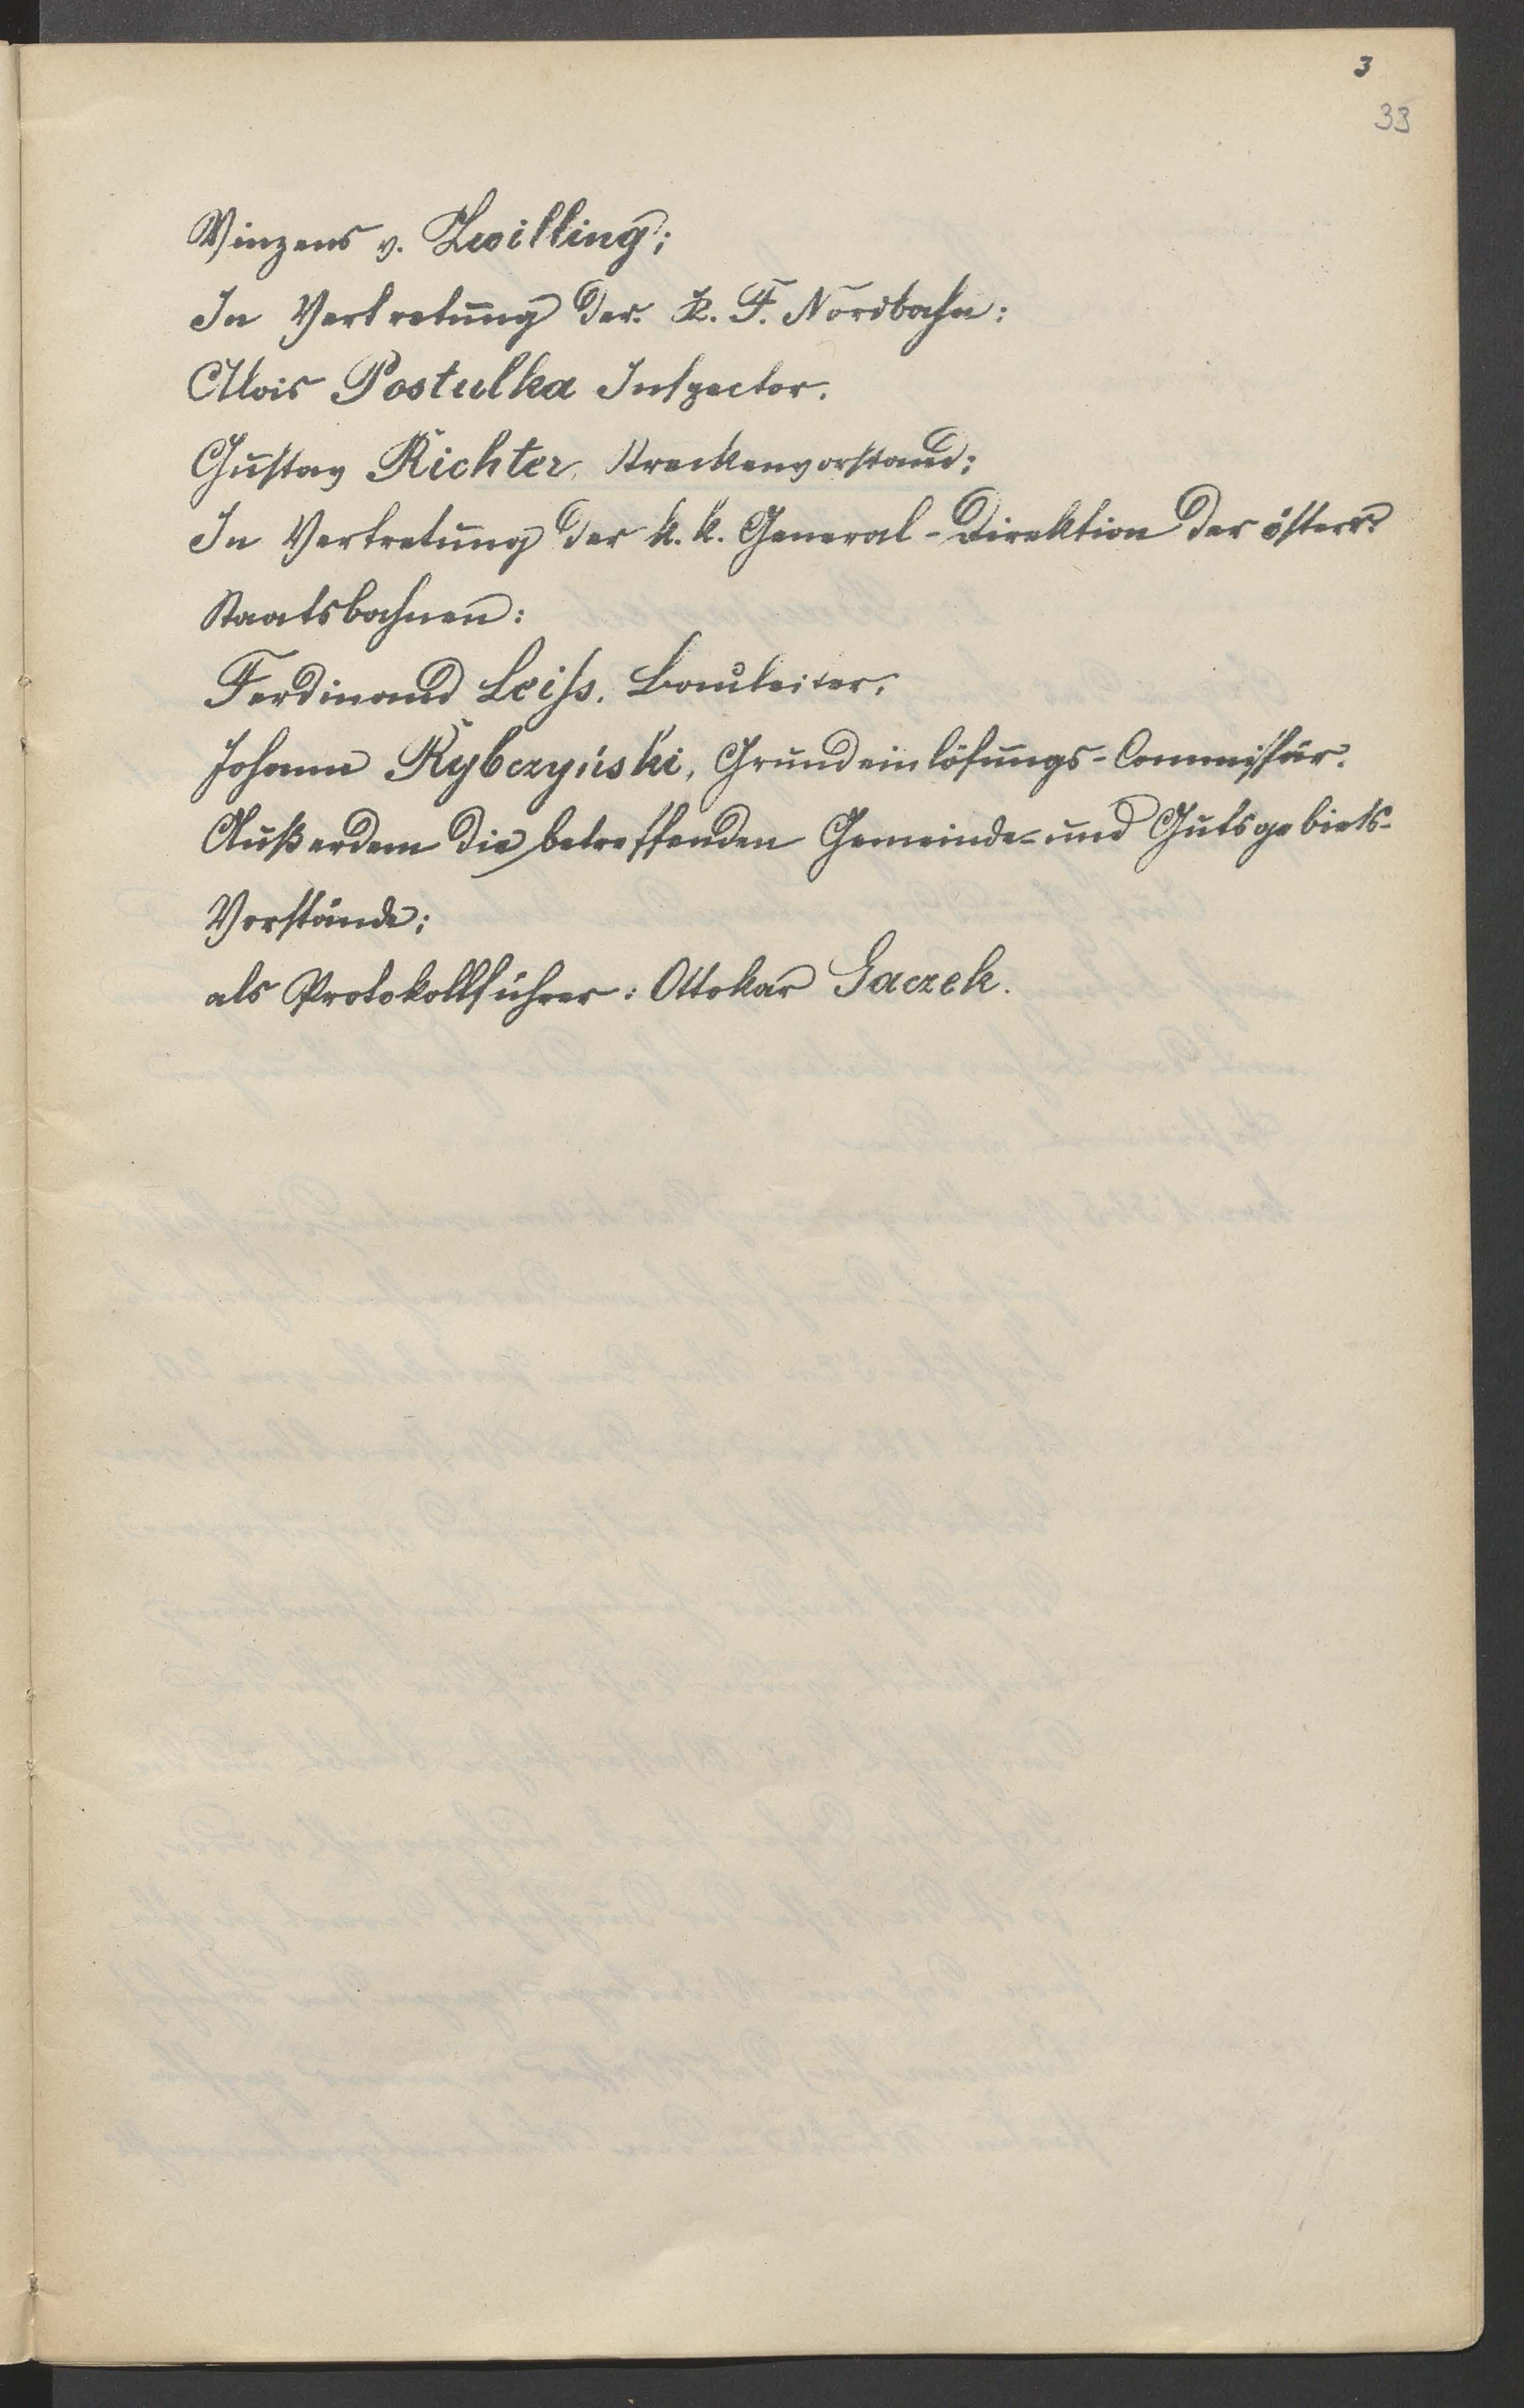 3
33
Vinzens v. Zwilling;
In Vertretung der K. F. Nordbahn:
Alois Postulka Inspector.
Gustav Richter, Streckenvorstand;
In Vertretung der k. k. General-Direktion der österr.
Staatsbahnen:
Ferdinand Leiss, Bauleiter;
Johann Rybczyński, Grundeinlösungs-Commissär.
Außerdem die betreffenden Gemeinde- und Gutsgebiets-
Vorstände;
als Protokollführer: Ottokar Gaczek.